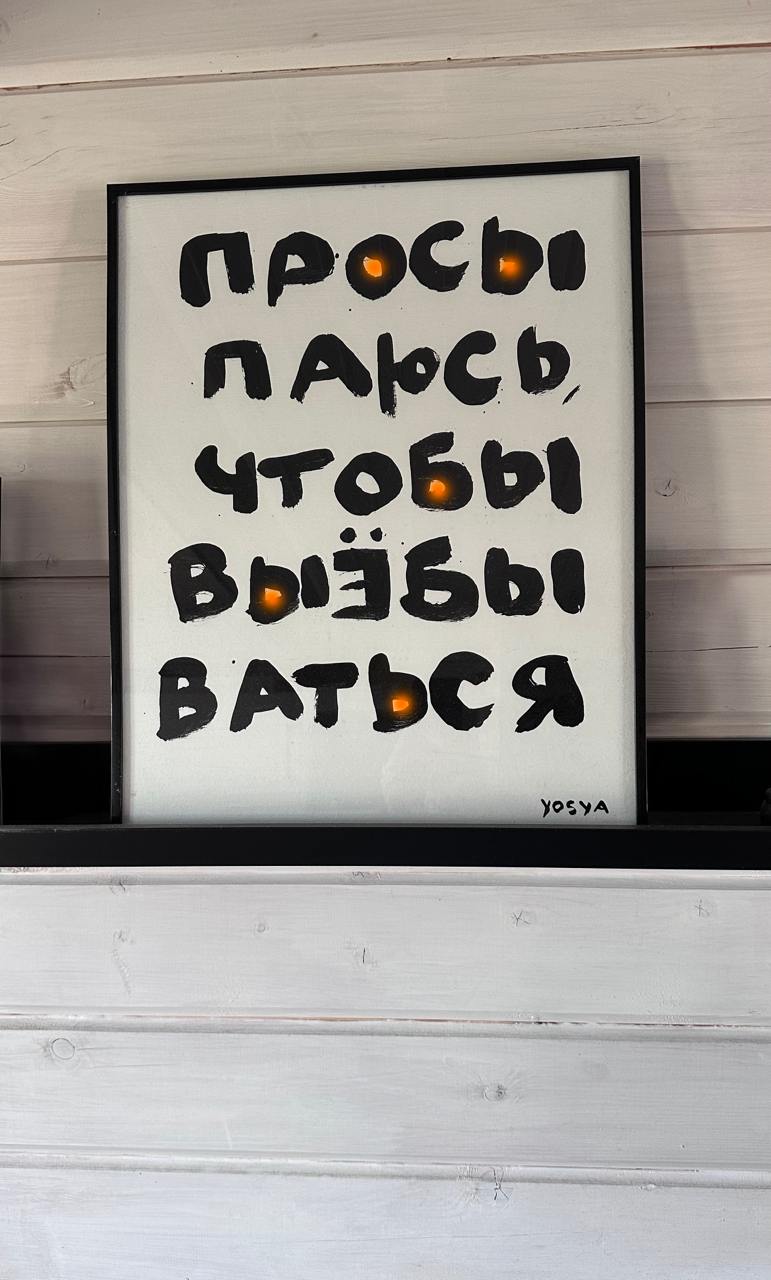 ПРОСЫ
ПАЮСЬ,
ЧТОБЫ
ВЫЁБЫ
ВАТЬСЯ
YOSYA